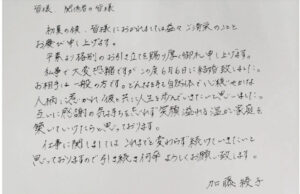 皆様 関係者の皆様
初夏の候、皆様におかれましては益々ご清栄のこと
お慶び申し上げます。
平素より格別のお引き立てを賜り厚く御礼申し上げます。
私事で大変恐縮ですがこの度6月6日に結婚致しました。
お相手は一般の方です。どんなときも自然体でいて穏やかな
人柄に惹かれ、彼と共に人生を歩んでいきたいと思いました。
互いに感謝の気持ちを忘れず笑顔溢れる温かい家庭を
築いていけたらと思っております。
仕事に関しましては これまでと変わらず続けていきたいと
思っておりますので引き続き何卒よろしくお願い致します。
加藤綾子